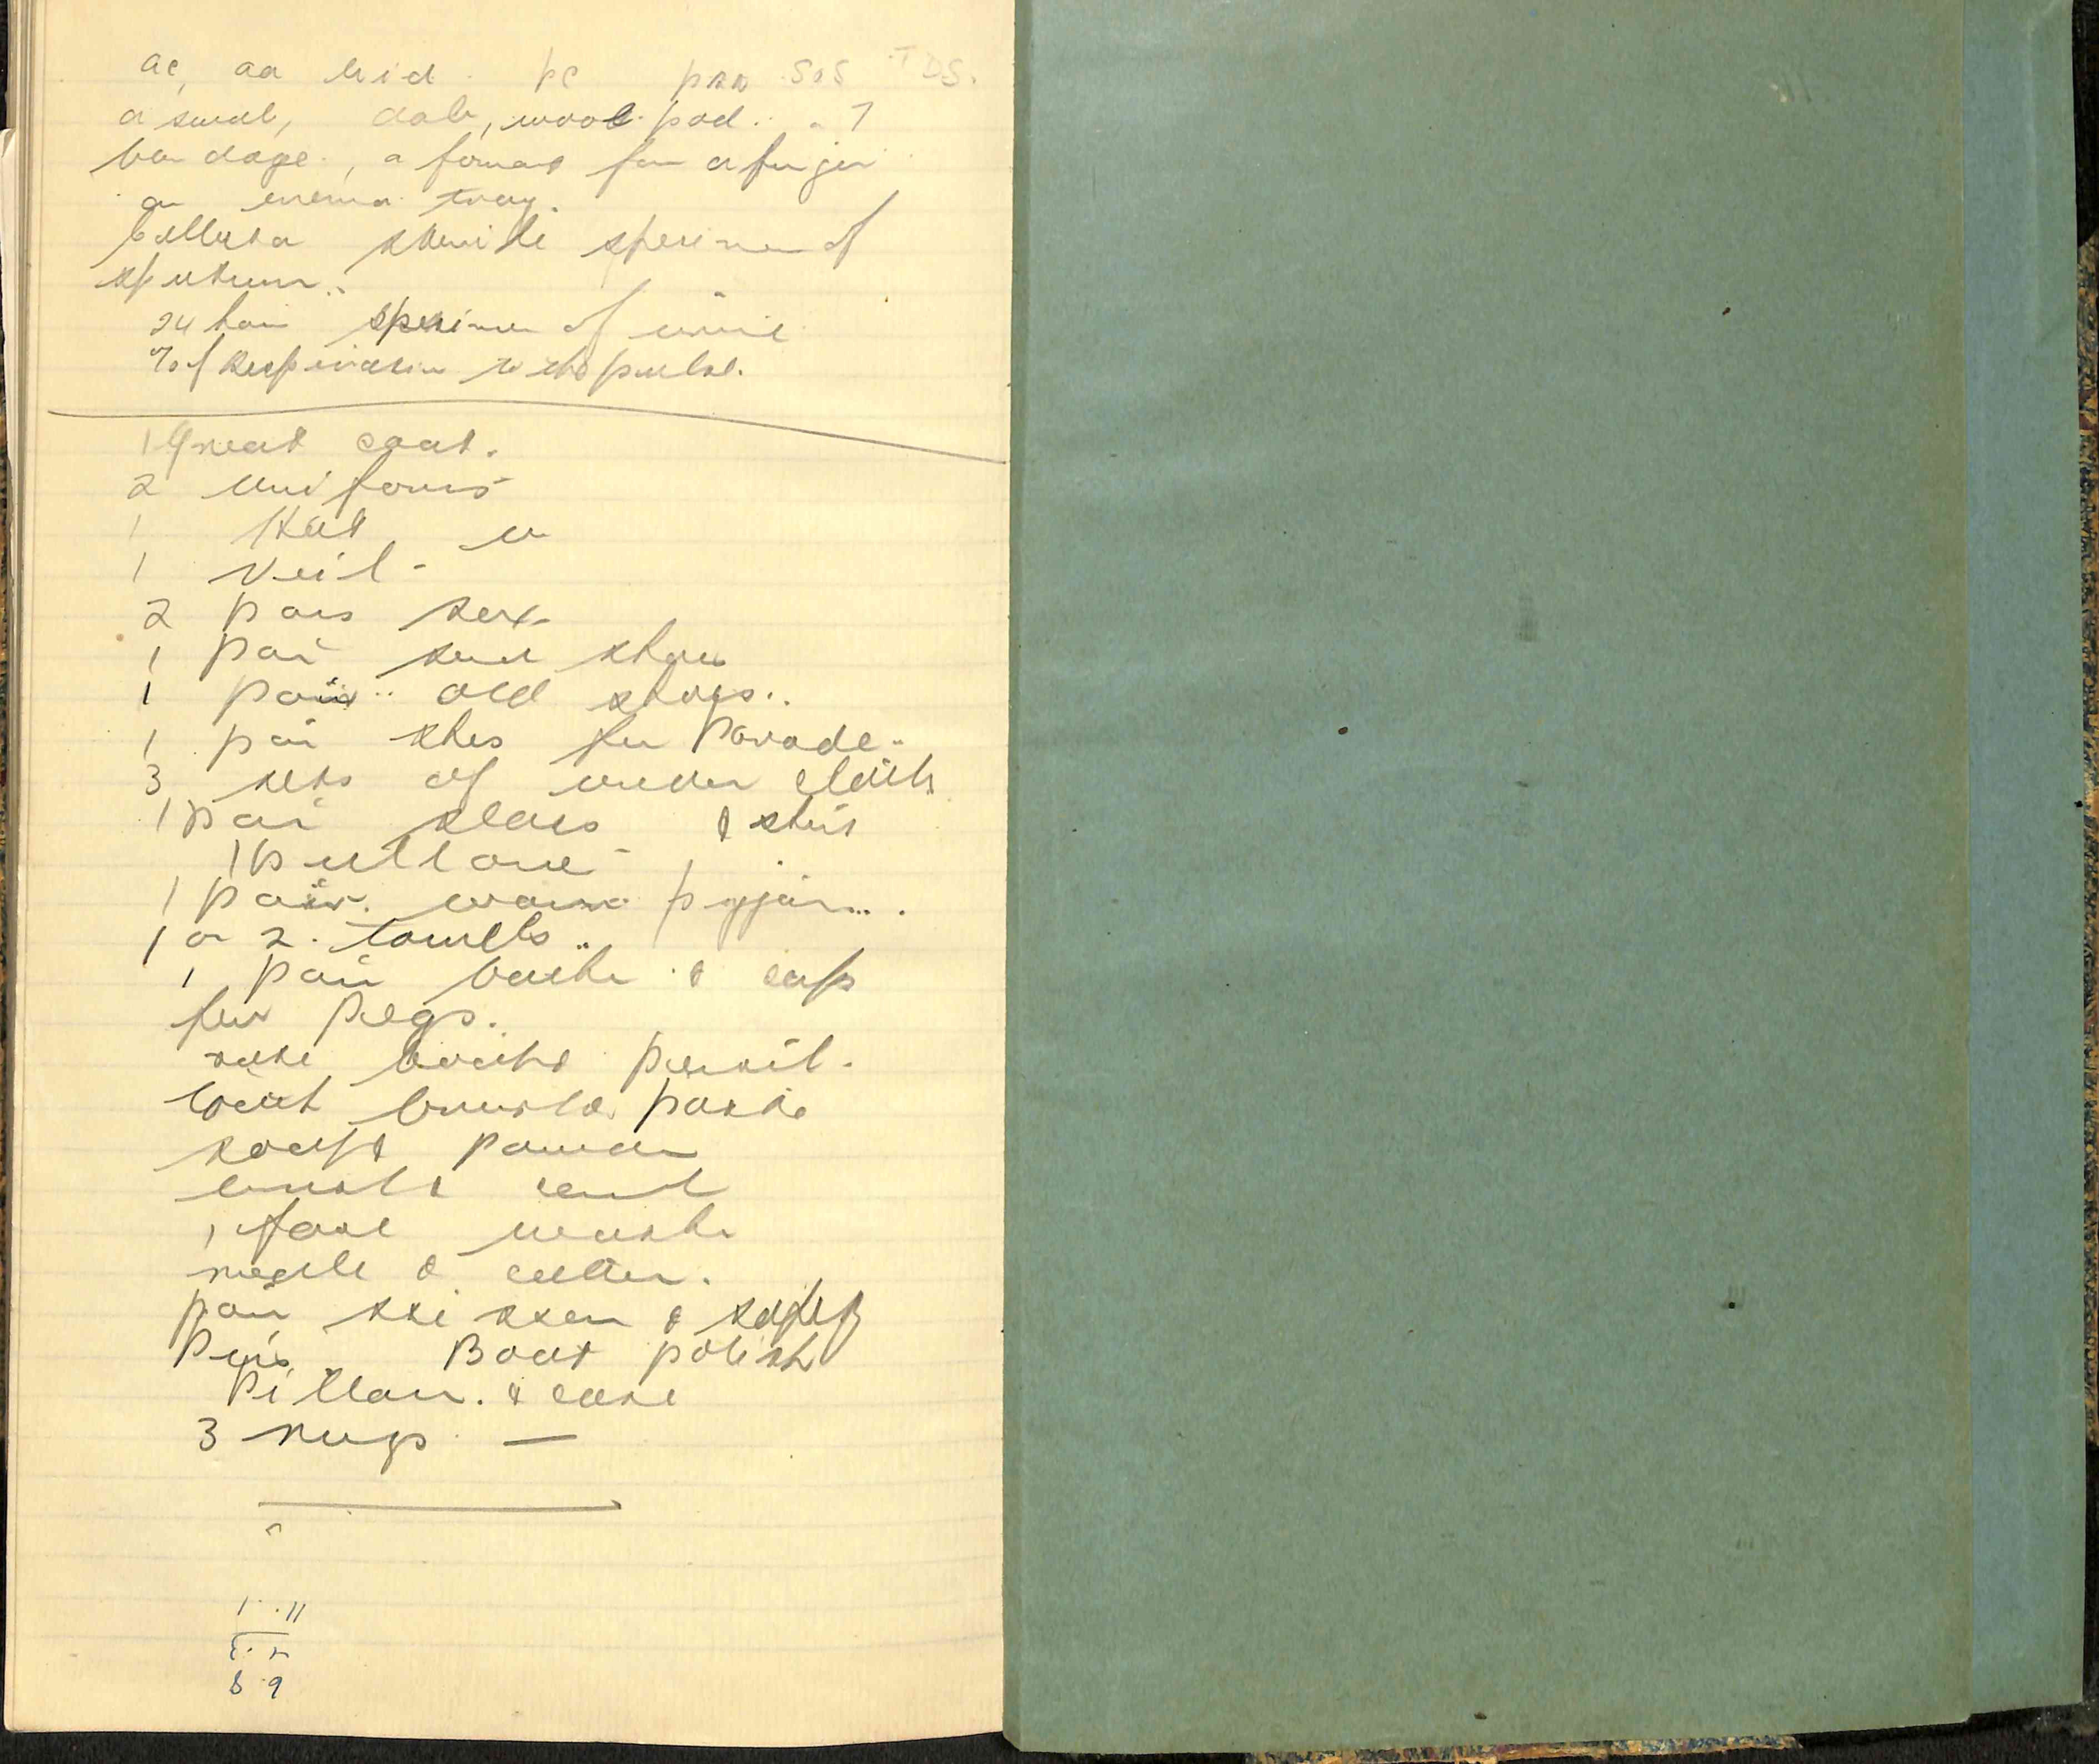 ac, aa bid. pc prn SOS TDS.
a swab, dab, wool pad..
bandage, a foment for a finger
an enema tray.
Collect a sterile specimen of
sputum..
24 hour specimen of urine
% of Respiration to the pulse.
1 Great coat.
2 uniforms
1 Hat
1 Veil -
2 pairs sox
1 pair shoes
1 pair old shoes..
1 pair shoes for Parade..
3 sets of under cloths
1 pair slacs & shirt
1 pullover
1 pair warm pyjam...
1 or 2. towells..
1 pair bathe & cap
few Pegs.
note book & pencil.
tooth brush & paste
soap & powder
brush & comb
1 face washer
needle & cotton.
pair scissors & safety
Pins Boot polish
Pillow. & case
3 rugs —
1 . . 11
8 . 9